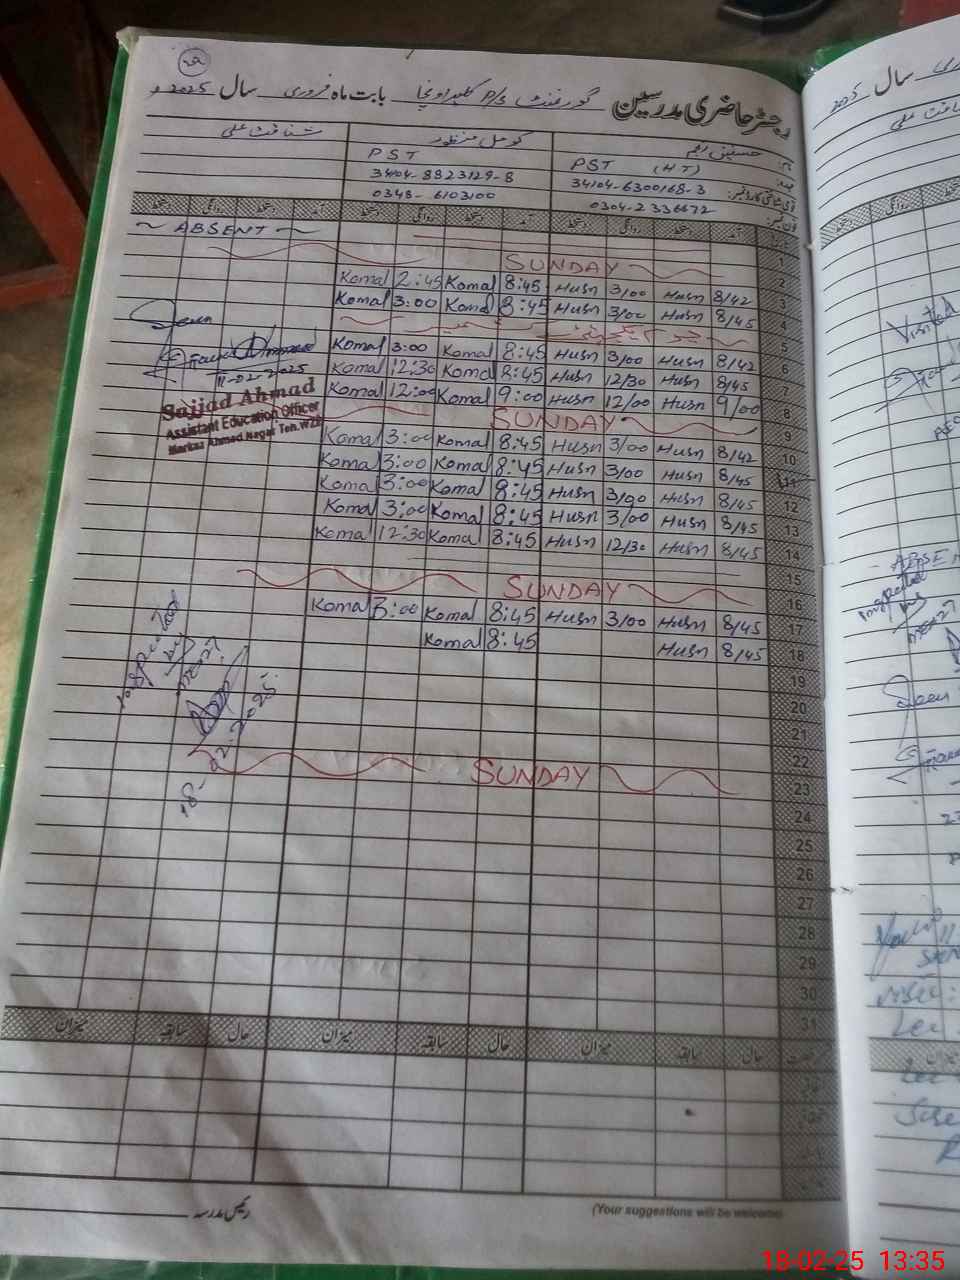 رجسٹر حاضری مدرسین گورنمنٹ P/S بابت ماہ فروری سال 2025ء
حسنین کومل منظور شفاقت علی
PST (HT) PST
34104-6300168-3 3404-8823129-8
0304-2336672 0348-6103100
آمد دستخط روانگی دستخط آمد دستخط روانگی دستخط آمد دستخط روانگی دستخط
1 ~ ABSENT ~
2 SUNDAY
3 8/42 Husn 3/00 Husn 8:45 Komal 2:45 Komal
4 8/45 Husn 3/00 Husn 8:45 Komal 3:00 Komal
5
6 8/42 Husn 3/00 Husn 8:45 Komal 3:00 Komal
7 8/45 Husn 12/30 Husn 8:45 Komal 12:30 Komal
8 9/00 Husn 12/00 Husn 9:00 Komal 12:00 Komal
9 SUNDAY
10 8/42 Husn 3/00 Husn 8:45 Komal 3:00 Komal
11 8/45 Husn 3/00 Husn 8:45 Komal 3:00 Komal
12 8/45 Husn 3/00 Husn 8:45 Komal 3:00 Komal
13 8/45 Husn 3/00 Husn 8:45 Komal 3:00 Komal
14 8/45 Husn 12/30 Husn 8:45 Komal 12:30 Komal
15
16 SUNDAY
17 8/45 Husn 3/00 Husn 8:45 Komal 3:00 Komal
18 8/45 Husn 8:45 Komal
19
20
21
22
23 SUNDAY
24
25
26
27
28
29
30
31
Seen
11-02-2025
Sajjad Ahmad
Assistant Education Officer
Markaz Ahmed Nagar Teh. WZD
18-02-2025
حال سابقہ میزان حال سابقہ میزان حال سابقہ میزان
رئیس مدرسہ
(Your suggestions will be welcome)
سال 205
Visited
ABSEN
Seen
18-02-25 13:35